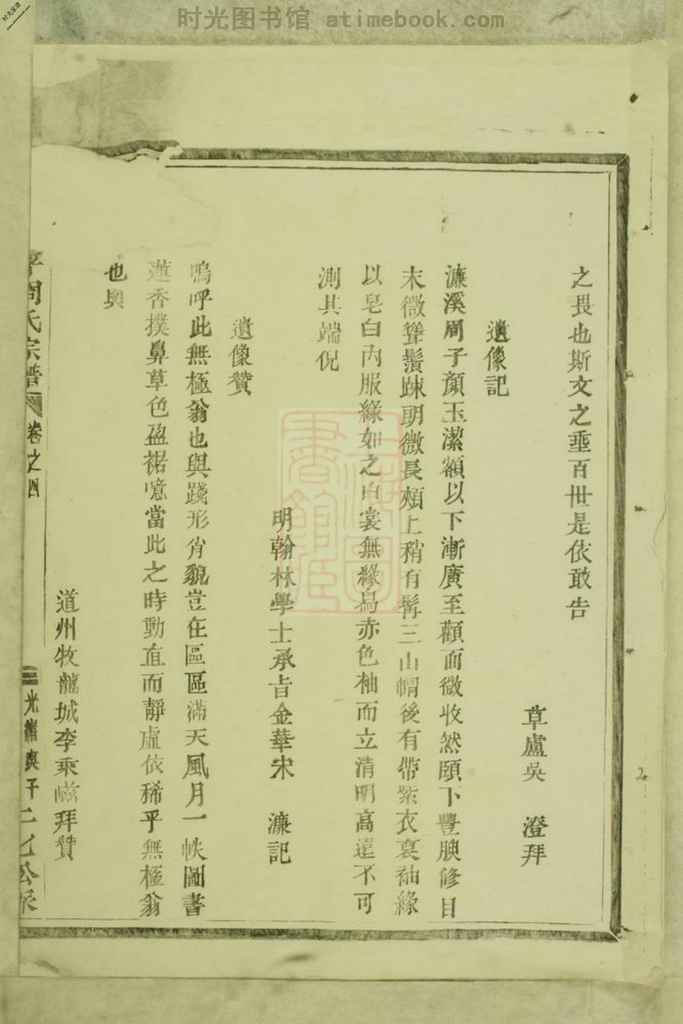 时光图书馆 atimebook.com
之畏也斯文之垂百世是依敢告
草廬吳　澄拜
遺像記
濂溪周子顏玉潔額以下漸廣至顴而微收然頤下豐腴修目
末微聳鬚踈朗微長頰上稍有髯三山㡌後有帶紫衣褎袖緣
以皂白內服緣如之白裳無緣舄赤色袖而立清明高遠不可
測其端倪
明翰林學士承旨金華宋　濂記
遺像贊
嗚呼此無極翁也與踐形肖貌豈在區區滿天風月一帙圖書
蓮香撲鼻草色盈裾噫當此之時動直而靜虛依稀乎無極翁
也與
道州牧龍城李乘拜贊
周氏宗譜　卷之四
光緒庚子　公派